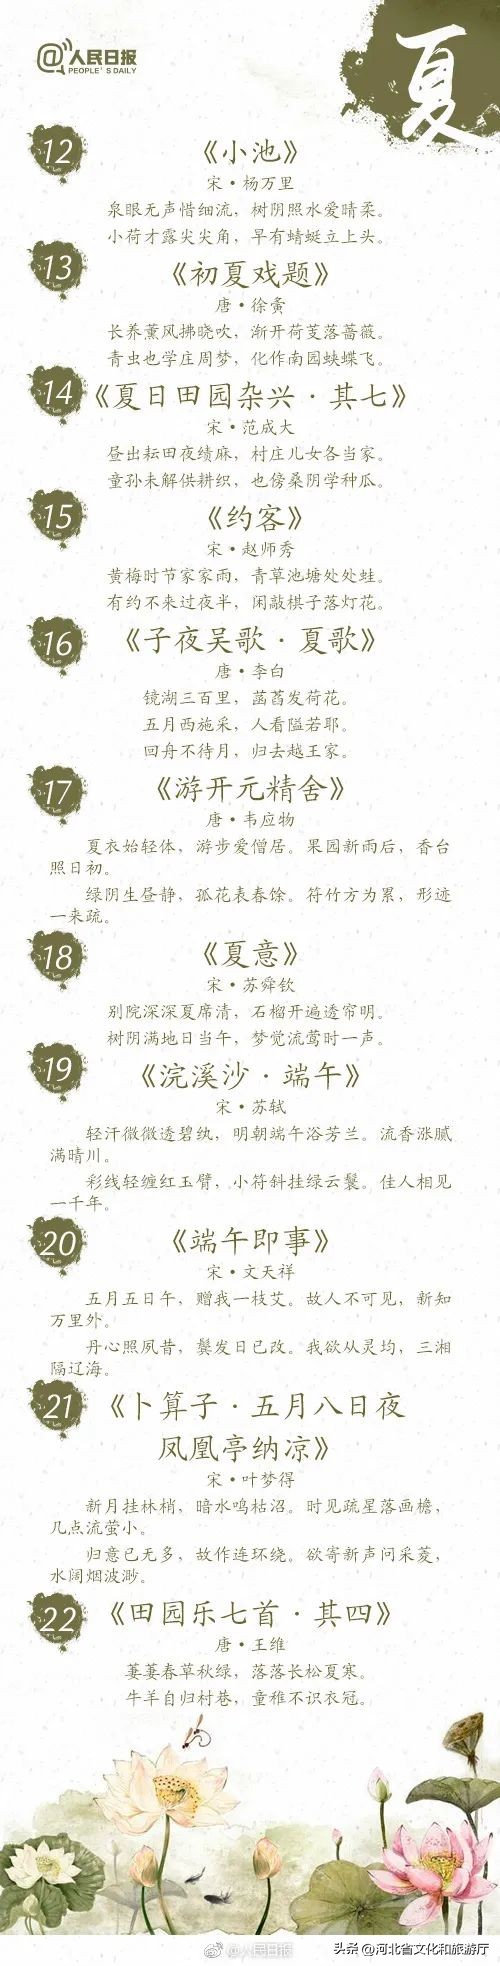 @人民日报
PEOPLE'S DAILY
夏
12
《小池》
宋·杨万里
泉眼无声惜细流，树阴照水爱晴柔。
小荷才露尖尖角，早有蜻蜓立上头。
13
《初夏戏题》
唐·徐夤
长养薰风拂晓吹，渐开荷芰落蔷薇。
青虫也学庄周梦，化作南园蛱蝶飞。
14
《夏日田园杂兴·其七》
宋·范成大
昼出耘田夜绩麻，村庄儿女各当家。
童孙未解供耕织，也傍桑阴学种瓜。
15
《约客》
宋·赵师秀
黄梅时节家家雨，青草池塘处处蛙。
有约不来过夜半，闲敲棋子落灯花。
16
《子夜吴歌·夏歌》
唐·李白
镜湖三百里，菡萏发荷花。
五月西施采，人看隘若耶。
回舟不待月，归去越王家。
17
《游开元精舍》
唐·韦应物
夏衣始轻体，游步爱僧居。果园新雨后，香台
照日初。
绿阴生昼静，孤花表春馀。符竹方为累，形迹
一来疏。
18
《夏意》
宋·苏舜钦
别院深深夏席清，石榴开遍透帘明。
树阴满地日当午，梦觉流莺时一声。
19
《浣溪沙·端午》
宋·苏轼
轻汗微微透碧纨，明朝端午浴芳兰。流香涨腻
满晴川。
彩线轻缠红玉臂，小符斜挂绿云鬟。佳人相见
一千年。
20
《端午即事》
宋·文天祥
五月五日午，赠我一枝艾。故人不可见，新知
万里外。
丹心照夙昔，鬓发日已改。我欲从灵均，三湘
隔辽海。
21
《卜算子·五月八日夜
凤凰亭纳凉》
宋·叶梦得
新月挂林梢，暗水鸣枯沼。时见疏星落画檐，
几点流萤小。
归意已无多，故作连环绕。欲寄新声问采菱，
水阔烟波渺。
22
《田园乐七首·其四》
唐·王维
萋萋春草秋绿，落落长松夏寒。
牛羊自归村巷，童稚不识衣冠。
@人民日报
头条 @河北省文化和旅游厅